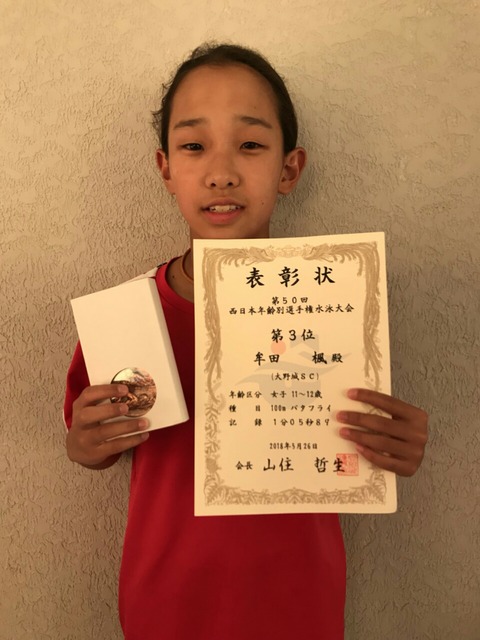 表彰状
第50回
西日本年齢別選手権水泳大会
第3位
牟田 楓 殿
(大野城SC)
年齢区分 女子 11～12歳
種目 100m バタフライ
記録 1分05秒89
2018年5月26日
会長 山住 哲生